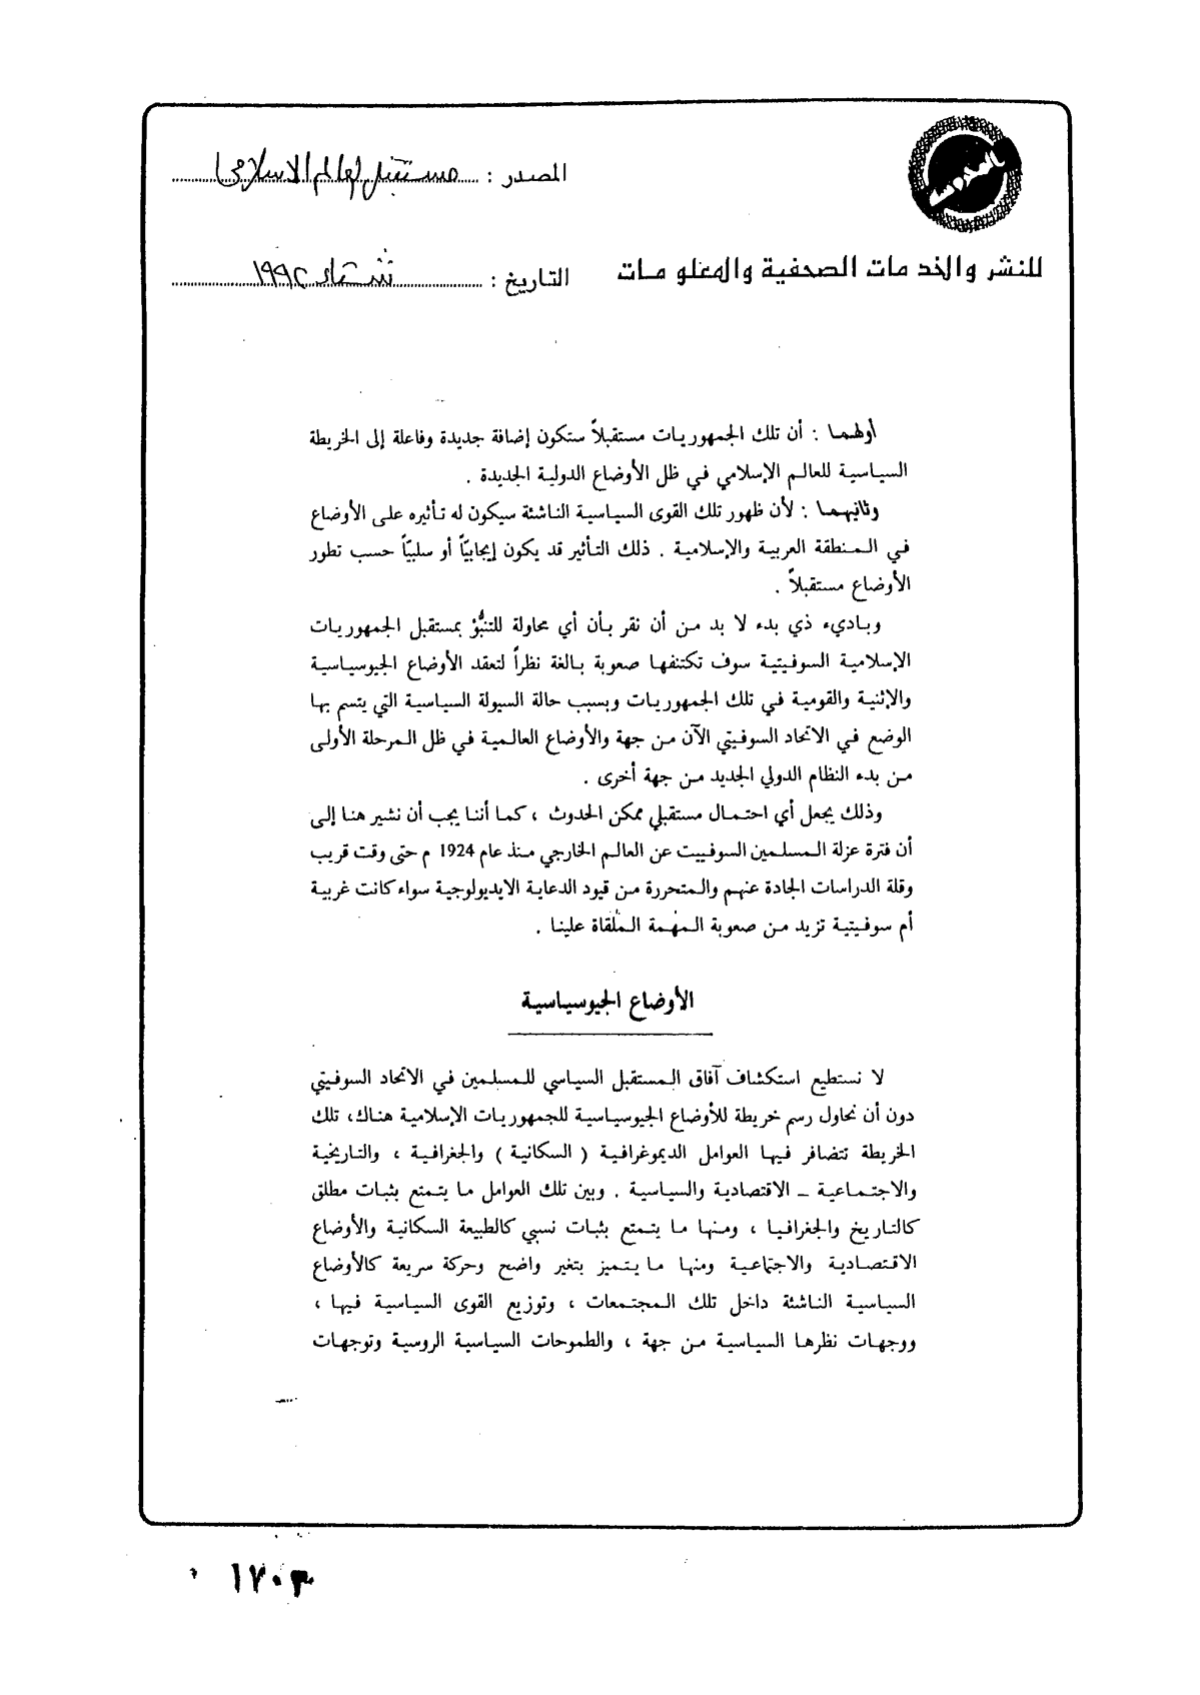 المصدر : مستقبل العالم الاسلامى
للنشر والخدمات الصحفية والمعلومات
التاريخ : شتاء ١٩٩٢
أولهما : أن تلك الجمهوريات مستقبلاً ستكون إضافة جديدة وفاعلة إلى الخريطة
السياسية للعالم الإسلامي في ظل الأوضاع الدولية الجديدة .
وثانيهما : لأن ظهور تلك القوى السياسية الناشئة سيكون له تأثيره على الأوضاع
في المنطقة العربية والإسلامية . ذلك التأثير قد يكون إيجابيّاً أو سلبيّاً حسب تطور
الأوضاع مستقبلاً .
وباديء ذي بدء لا بد من أن نقر بأن أي محاولة للتنبُّؤ بمستقبل الجمهوريات
الإسلامية السوفيتية سوف تكتنفها صعوبة بالغة نظراً لتعقد الأوضاع الجيوسياسية
والإثنية والقومية في تلك الجمهوريات وبسبب حالة السيولة السياسية التي يتسم بها
الوضع في الاتحاد السوفيتي الآن من جهة والأوضاع العالمية في ظل المرحلة الأولى
من بدء النظام الدولي الجديد من جهة أخرى .
وذلك يجعل أي احتمال مستقبلي ممكن الحدوث ، كما أننا يجب أن نشير هنا إلى
أن فترة عزلة المسلمين السوفييت عن العالم الخارجي منذ عام 1924 م حتى وقت قريب
وقلة الدراسات الجادة عنهم والمتحررة من قيود الدعاية الايديولوجية سواء كانت غربية
أم سوفيتية تزيد من صعوبة المهمة الملقاة علينا .
الأوضاع الجيوسياسية
لا نستطيع استكشاف آفاق المستقبل السياسي للمسلمين في الاتحاد السوفيتي
دون أن نحاول رسم خريطة للأوضاع الجيوسياسية للجمهوريات الإسلامية هناك، تلك
الخريطة تتضافر فيها العوامل الديموغرافية ( السكانية ) والجغرافية ، والتاريخية
والاجتماعية ــ الاقتصادية والسياسية . وبين تلك العوامل ما يتمتع بثبات مطلق
كالتاريخ والجغرافيا ، ومنها ما يتمتع بثبات نسبي كالطبيعة السكانية والأوضاع
الاقتصادية والاجتماعية ومنها ما يتميز بتغير واضح وحركة سريعة كالأوضاع
السياسية الناشئة داخل تلك المجتمعات ، وتوزيع القوى السياسية فيها ،
ووجهات نظرها السياسية من جهة ، والطموحات السياسية الروسية وتوجهات
١٧٠٣